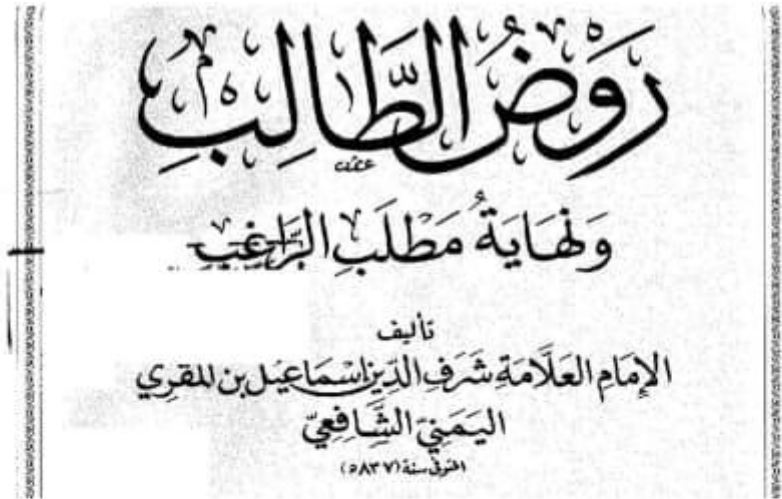 رَوْضُ الطَّالِبِ
وَنِهَايَةُ مَطْلَبِ الرَّاغِبِ
تأليف
الإِمَامِ العَلَّامَةِ شَرَفِ الدِّينِ اسْمَاعِيل بن المقري
اليَمَنِيّ الشَّافِعِيّ
المتوفى سنة (٨٣٧ه)